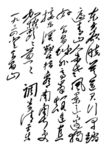 东方欲晓莫道君行早踏
遍青山人未老风景这边独
好会昌城外高峰颠连直
接东溟战士指看南粤更
加郁郁葱葱
调寄清平乐